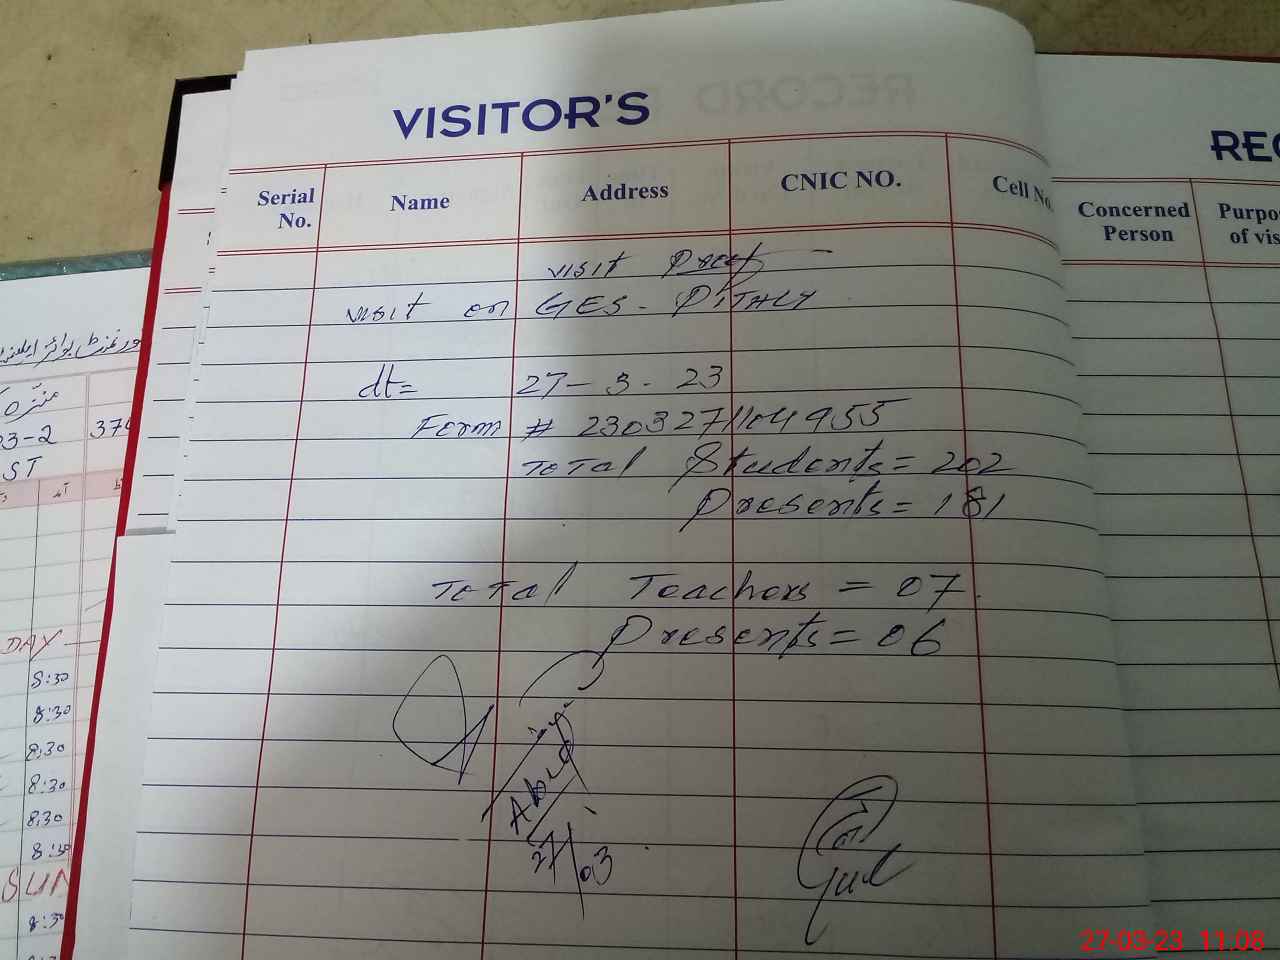 VISITOR'S
Serial No.
Name
Address
CNIC NO.
Cell No.
REC
Concerned Person
Purpo
of vis
visit Proof
visit on GES - PITHLY
dt= 27-3-23
Form # 2303271104955
Total Students = 202
Presents = 181
Total Teachers = 07
Presents = 06
Abid
27/03
Gul
RECORD
منزہ
03-2
374
ST
DAY
8:30
8:30
8:30
8:30
8:30
8:30
SUN
8:30
27-03-23 11:08